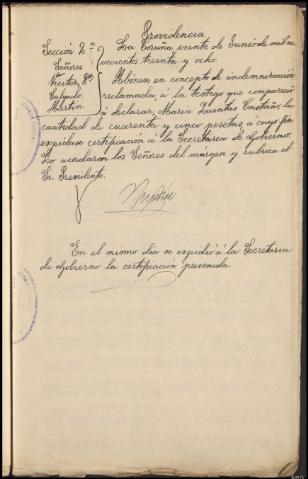 Providencia
Sección 2ª
Señores
Salgado.
Martín.
La Coruña, veinte de Junio de mil no-
vecientos treinta y ocho.
Abónese en concepto de indemnización
reclamada, á la testigo que compareció
á declarar, María Fuentes Castaño, la
cantidad de cuarenta y cinco pesetas á cuyo fin
expídase certificación á la Secretaria de Gobierno.
Lo acordaron los Señores del márgen y rubrica el
Sr. Presidente.
En el mismo dia se expidió á la Secretaria
de Gobierno la certificación prevenida.